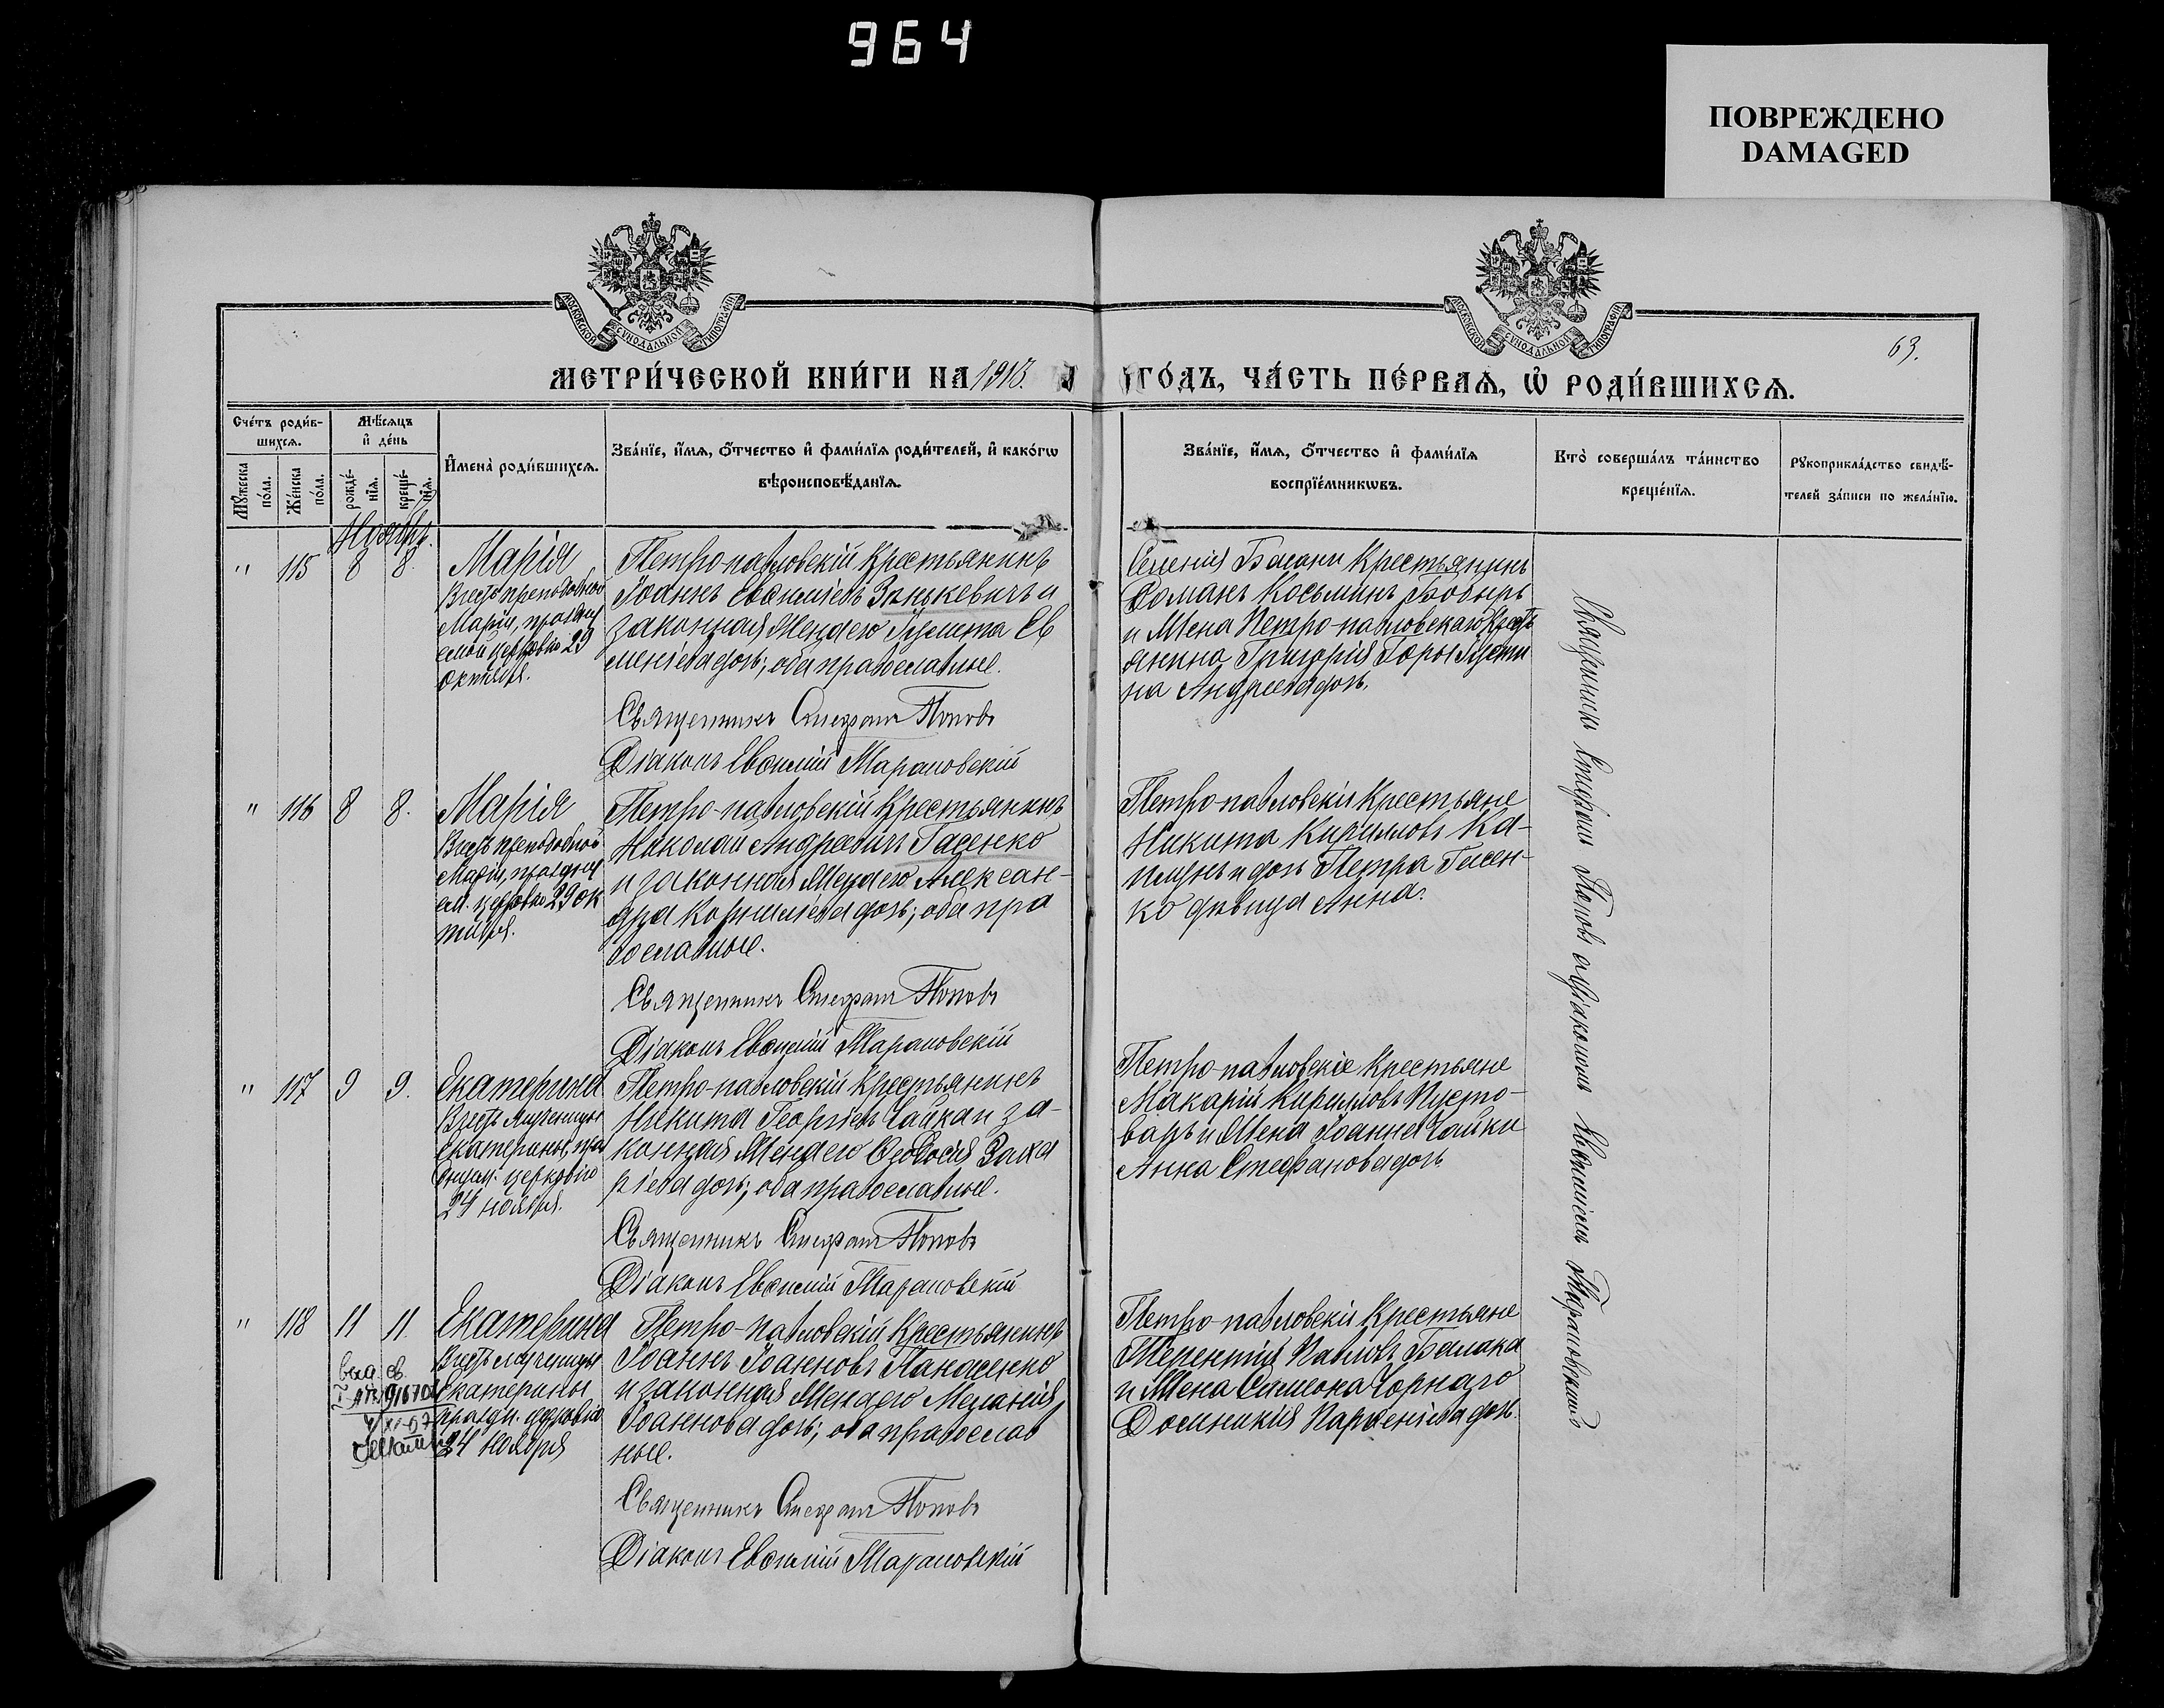 964
ПОВРЕЖДЕНО
DAMAGED
МОСКОВСКОЙ СѴНОДАЛЬНОЙ ТИПОГРАФІИ
МОСКОВСКОЙ СѴНОДАЛЬНОЙ ТИПОГРАФІИ
63.
МЕТРИ́ЧЕСКОЙ КНИ́ГИ НА 1913.
ГО́ДЪ, ЧА́СТЬ ПЕ́РВАѦ, Ѡ҆ РОДИ́ВШИХСѦ.
Сче́тъ роди́в-
шихсѧ.
Мѣ́сѧцъ
и҆ де́нь
Мꙋ́жеска по́ла.
Же́нска по́ла.
рожде́-
нїѧ.
креще́-
нїѧ.
И҆мена̀ роди́вшихсѧ.
Зва́нїе, и҆́мѧ, ѻ҆́тчество и҆ фами́лїѧ роди́телей, и҆ како́гѡ
вѣроисповѣ́данїѧ.
Зва́нїе, и҆́мѧ, ѻ҆́тчество и҆ фами́лїѧ
воспрїе́мникѡвъ.
Кто̀ соверша́лъ та́инство
креще́нїѧ.
Рꙋкоприкла́дство свидѣ́-
телей за́писи по жела́нїю.
Ноябрь.
" 115 8 8.
Марія
Въ честь преподобной
Маріи, праздну
емой церковію 29
октября.
Петро-павловскій Крестьянинъ
Іоаннъ Евѳиміевъ Занькевичъ и
законная жена его Іулитта Ев
меніева дочь; оба православные.
Священникъ Стефанъ Поповъ
Діаконъ Евѳимій Марановскій
Селенія Басани Крестьянинъ
Романъ Косьминъ Бобырь
и жена Петро-павловскаго Крестъ
янина Григорія Горы Іусти
на Андреева дочь.
" 116 8 8.
Марія
Въ честь преподобной
Маріи, праздну
ем. церковію 29 ок
тября.
Петро-павловскій Крестьянинъ
Николай Андреевичъ Гасенко
и законная жена его Алексан-
дра Корниліева дочь; оба пра
вославные.
Священникъ Стефанъ Поповъ
Діаконъ Евѳимій Марановскій
Петро-павловскія Крестьяне
Никита Кирилловъ Ка-
и дочь Петра Гасен-
ко дѣвица Анна.
" 117 9 9.
Екатерина
Въ честь мученицы
Екатерины, пра
зднуем. церковію
24 ноября.
Петро-павловскій Крестьянинъ
Никита Георгіевъ Чайка и за-
конная жена его Ѳеодосія Заха
ріева дочь; оба православные.
Священникъ Стефанъ Поповъ
Діаконъ Евѳимій Марановскій
Петро-павловскіе Крестьяне
Макарій Кирилловъ Пусто-
варъ и жена Іоанна Чайки
Анна Стефанова дочь
" 118 11 11.
Екатерина
Въ честь мученицы
Екатерины,
праздн. церковію
24 ноября
Петро-павловскій Крестьянинъ
Іоаннъ Іоанновъ Панасенко
и законная жена его Меланія
Іоаннова дочь; оба православ
ные.
Священникъ Стефанъ Поповъ
Діаконъ Евѳимій Марановскій
Петро-павловскія Крестьяне
Терентій Павловъ Балака
и жена Симеона Чорнаго
Домникія Парѳеніева дочь.
Священникъ Стефанъ Поповъ съ діакономъ Евѳиміемъ Марановскимъ